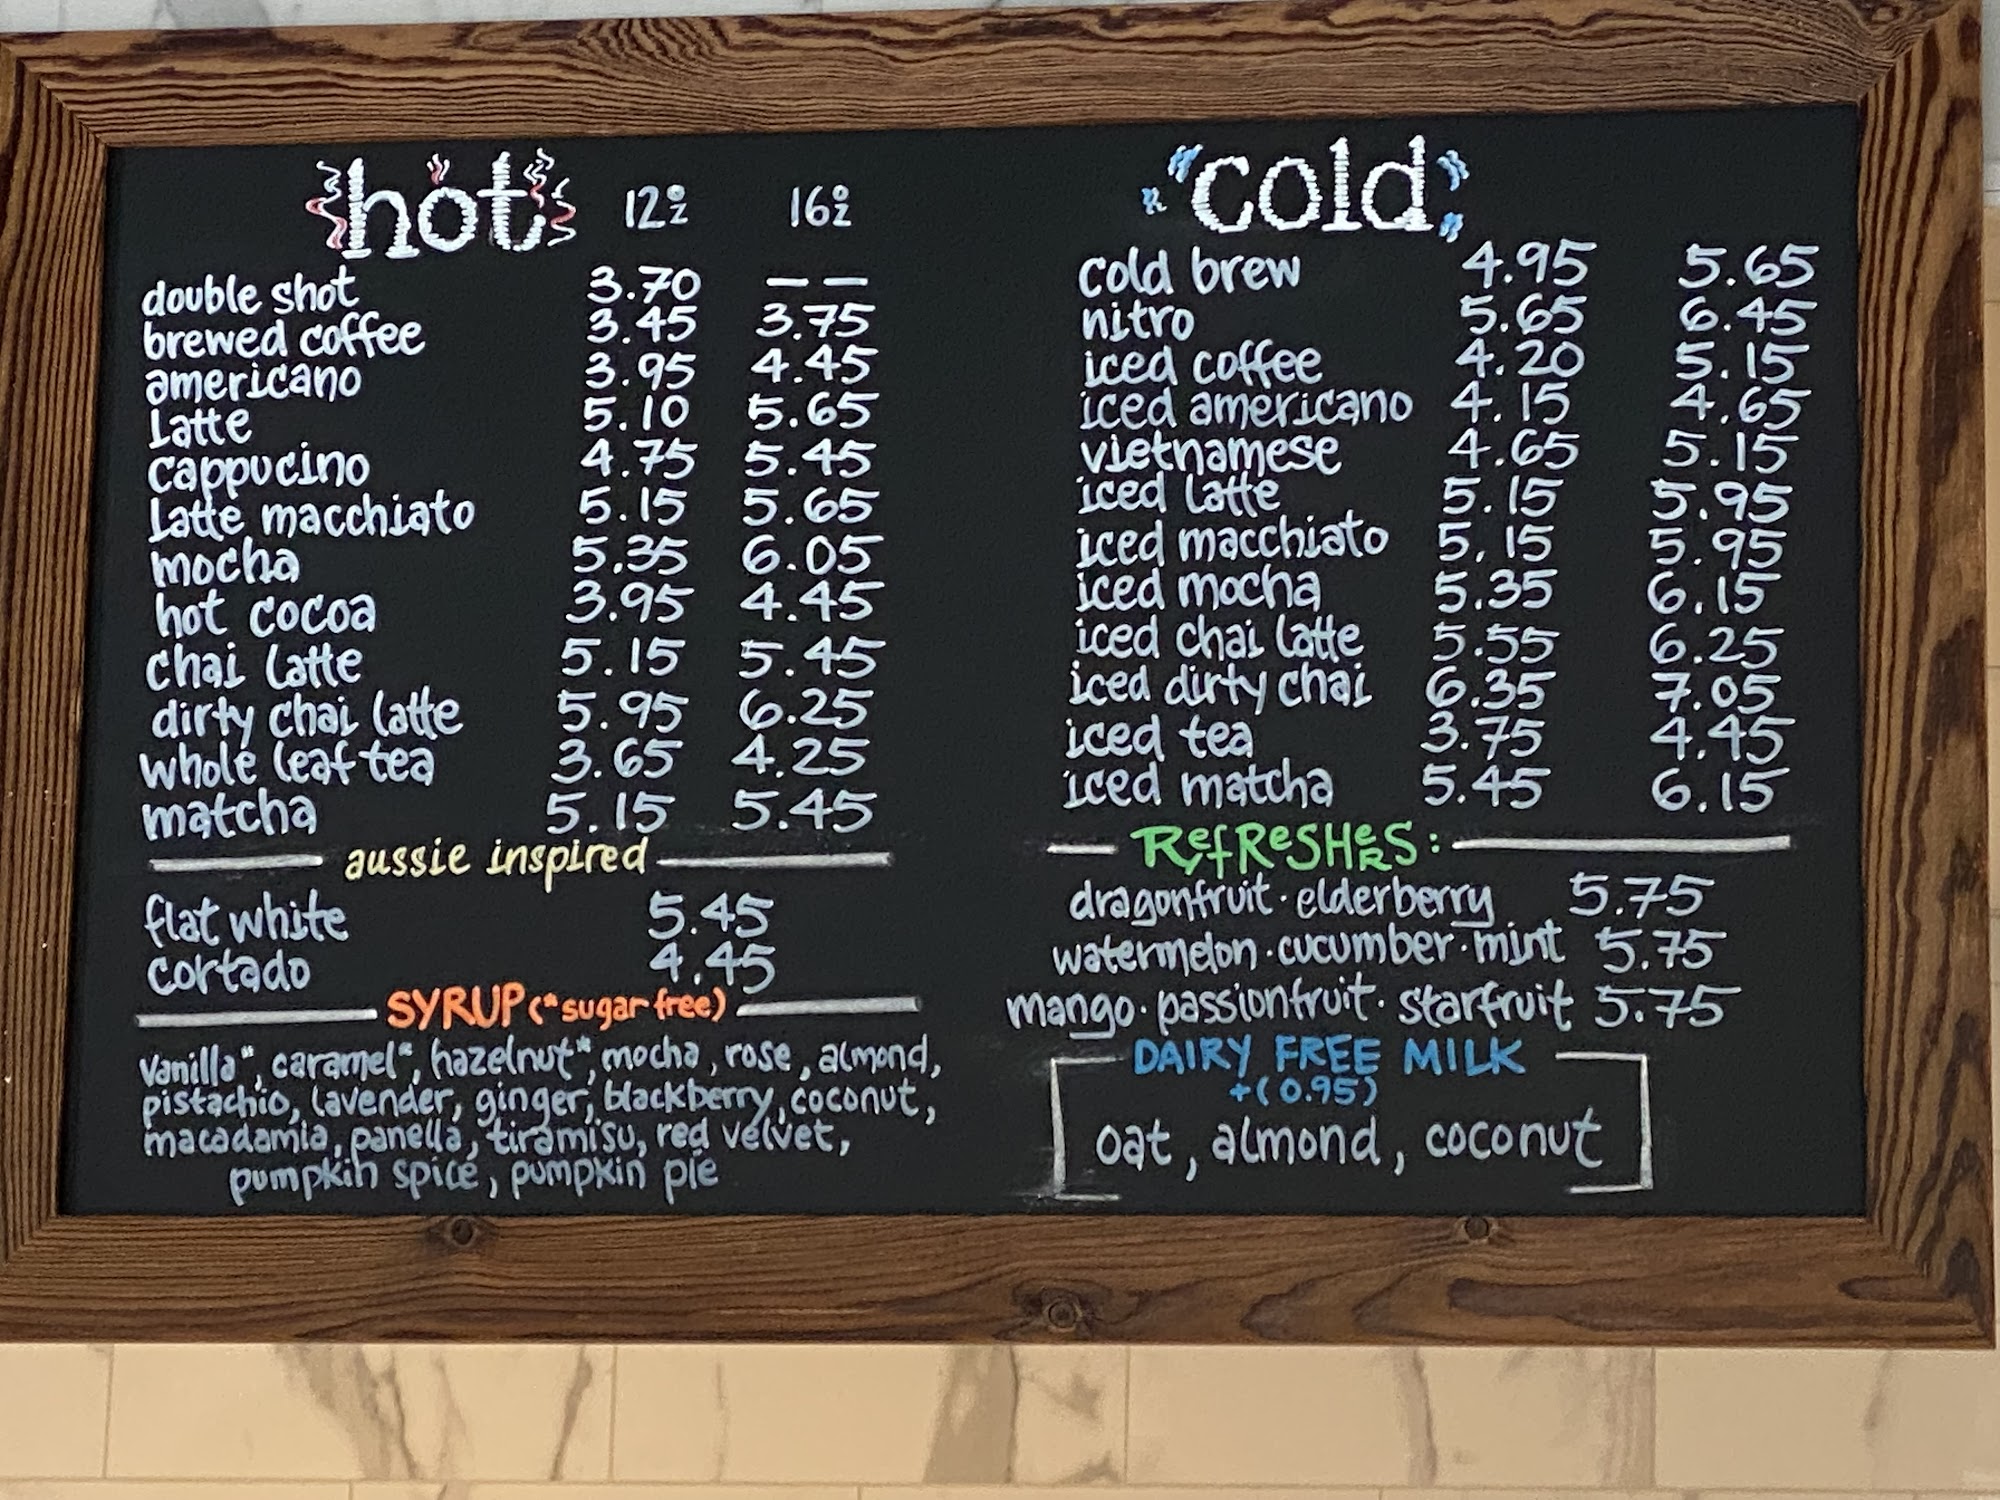 hot 12oz 16oz
double shot 3.70 — —
brewed coffee 3.45 3.75
americano 3.95 4.45
latte 5.10 5.65
cappucino 4.75 5.45
latte macchiato 5.15 5.65
mocha 5.35 6.05
hot cocoa 3.95 4.45
chai latte 5.15 5.45
dirty chai latte 5.95 6.25
whole leaf tea 3.65 4.25
matcha 5.15 5.45
aussie inspired
flat white 5.45
cortado 4.45
SYRUP (*sugar free)
vanilla*, caramel*, hazelnut*, mocha, rose, almond,
pistachio, lavender, ginger, blackberry, coconut,
macadamia, panella, tiramisu, red velvet,
pumpkin spice, pumpkin pie
cold
cold brew 4.95 5.65
nitro 5.65 6.45
iced coffee 4.20 5.15
iced americano 4.15 4.65
vietnamese 4.65 5.15
iced latte 5.15 5.95
iced macchiato 5.15 5.95
iced mocha 5.35 6.15
iced chai latte 5.55 6.25
iced dirty chai 6.35 7.05
iced tea 3.75 4.45
iced matcha 5.45 6.15
RefReSHeRS:
dragonfruit · elderberry 5.75
watermelon · cucumber · mint 5.75
mango · passionfruit · starfruit 5.75
DAIRY FREE MILK
+(0.95)
oat, almond, coconut